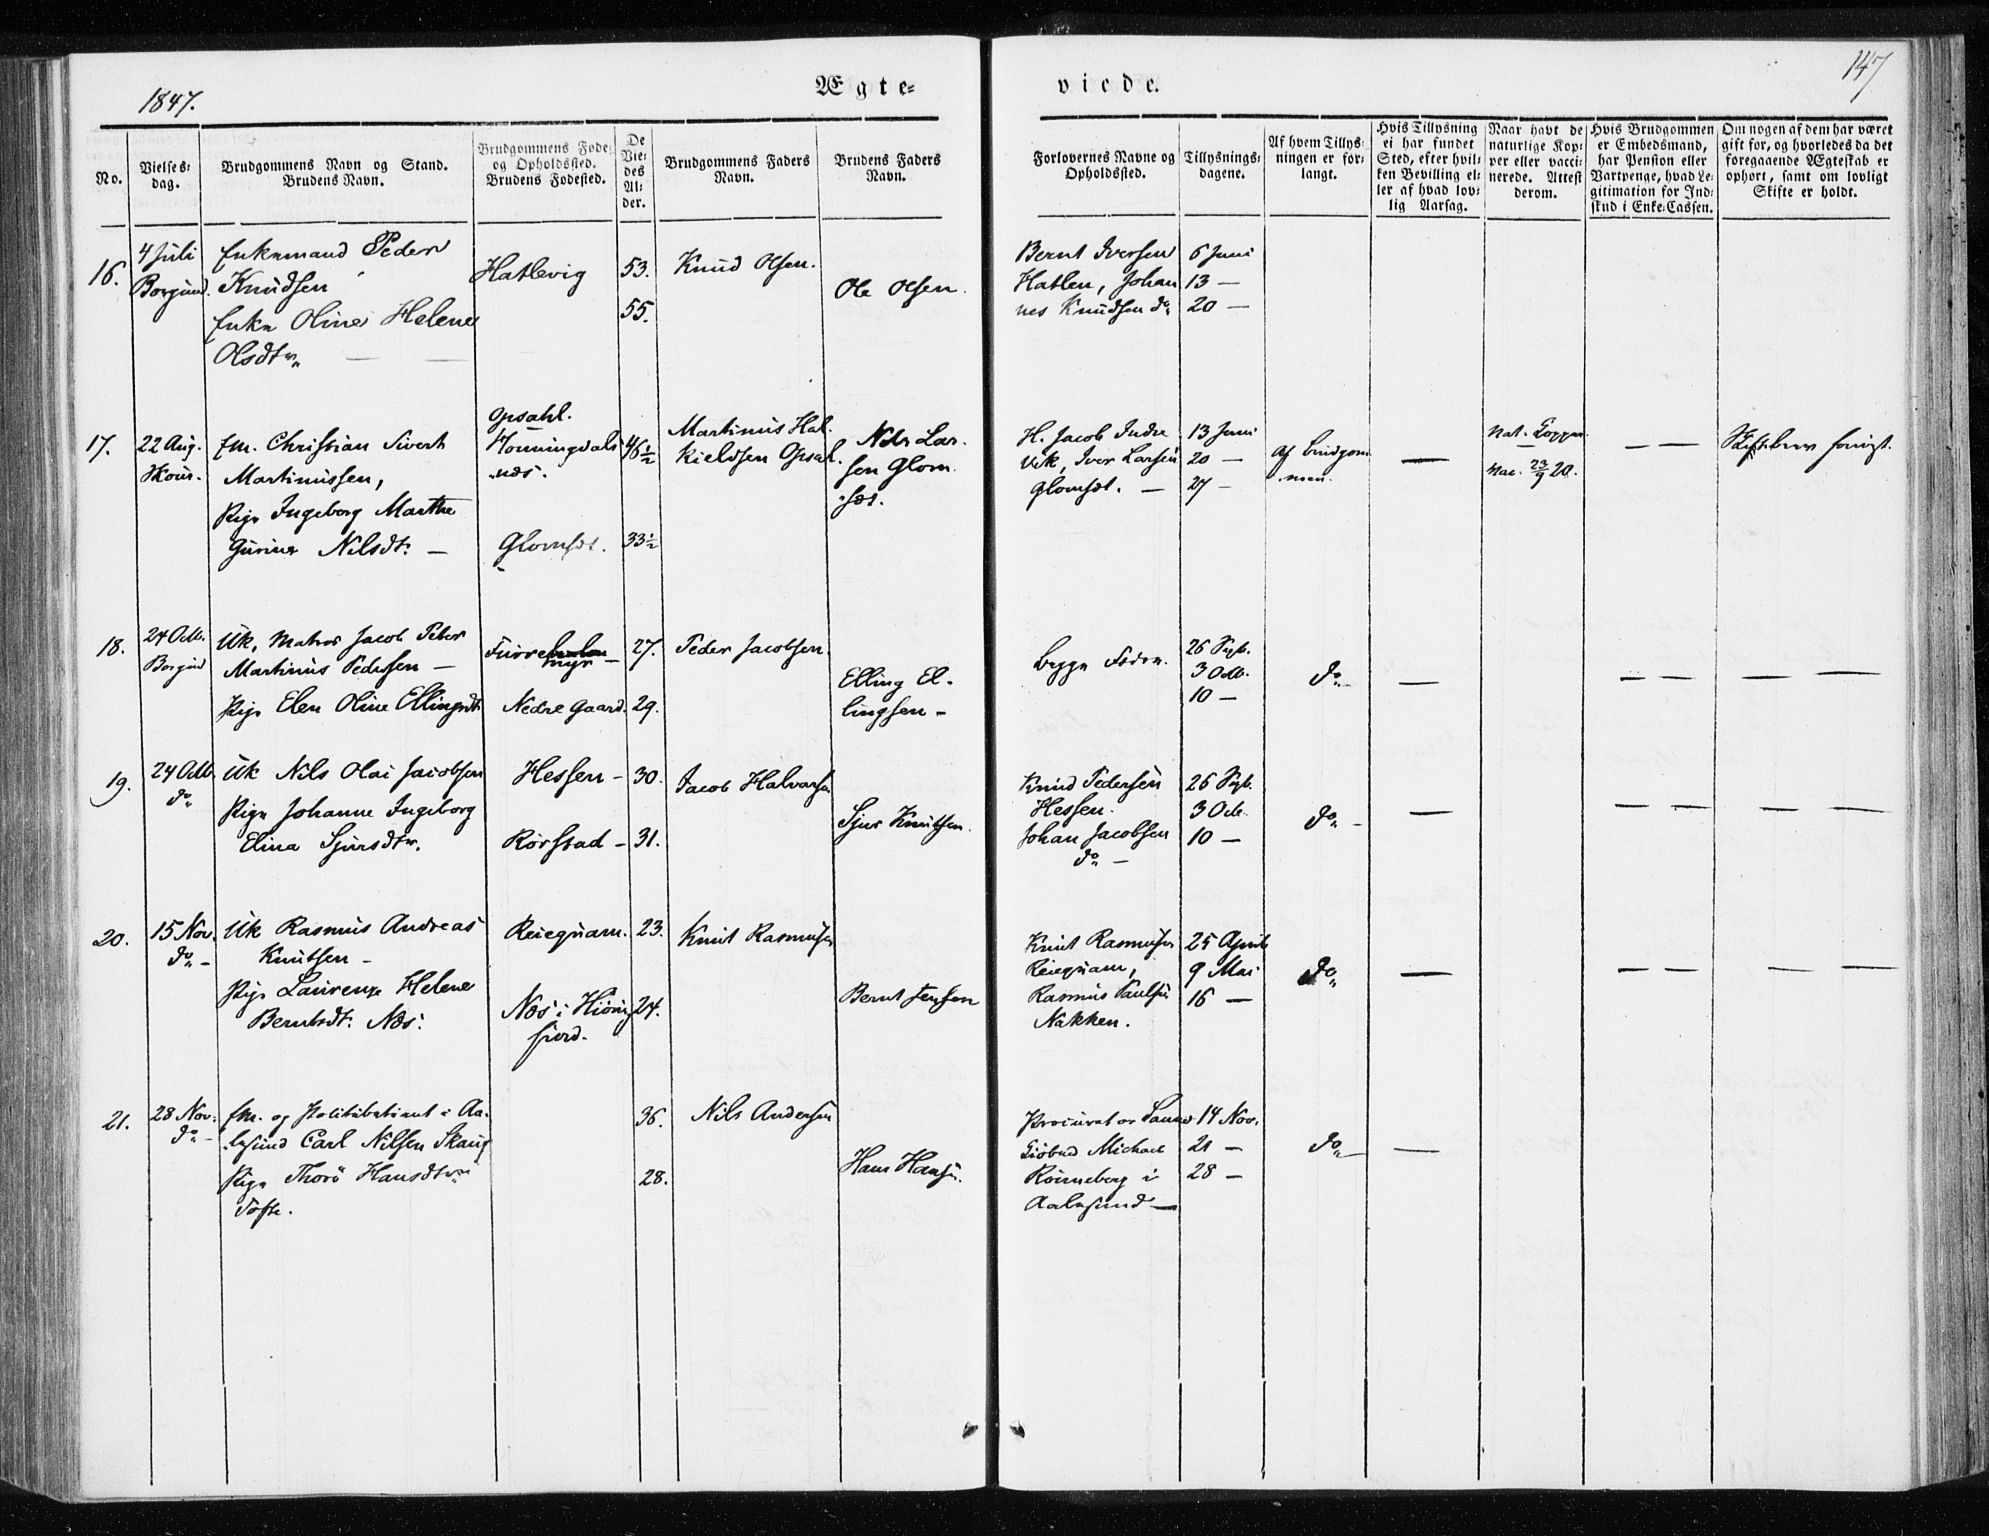 1847.
Ægte=
viede.
147
No.
Vielses=
dag.
Brudgommens Navn og Stand.
Brudens Navn.
Brudgommens Føde=
og Opholdssted.
Brudens Fødested.
De
Vie=
des
Al=
der.
Brudgommens Faders
Navn.
Brudens Faders
Navn.
Forlovernes Navne og
Opholdssted.
Tillysnings=
dagene.
Af hvem Tillys=
ningen er for=
langt.
Hvis Tillysning
ei har fundet
Sted, efter hvil=
ken Bevilling el=
ler af hvad lov=
lig Aarsag.
Naar havt de
naturlige Kop=
per eller vacci=
nerede. Attest
derom.
Hvis Brudgommen
er Embedsmand,
har Pension eller
Vartpenge, hvad Le=
gitimation for Ind=
skud i Enke=Cassen.
Om nogen af dem har været
gift før, og hvorledes da det
foregaaende Ægteskab er
ophørt, samt om lovligt
Skifte er holdt.
16.
4 Juli
Borgund.
Enkemand Peder
Knudsen
Enke Oline Helene
Olsdtr
Hatlevig
53.
55.
Knud Olsen.
Ole Olsen.
Bernt Iversen
Hatlen, Johan
nes Knudsen do
6 Juni
13 —
20 —
17.
22 Aug.
Skour.
Em. Christian Sivert
Martinussen,
Pige Ingeborg Marthe
Gurine Nilsdt. —
Opsahl.
Honningdals
næs.
Glomsæt.
46½
33½
Martinus Hal.
kieldsen Opsal.
Nils Lar.
sen Glom
sæt.
H. Jacob Indre
Vik, Iver Larsen
Glomsæt. —
13 Juni
20 —
27 —
Af Brudgom
men.
—
Nat. Kopper
Vac. 23/9 20.
— —
Skiftebrev foreviist.
18.
24 Octb.
Borgund
Uk, Matros Jacob Peter
Martinus Pedersen —
Pige Elen Oline Ellingsdt.
Furre
myr —
Nedre Gaard.
27.
29.
Peder Jacobsen.
Elling El.
lingsen —
begge Fædre.
26 Sept.
3 Octb.
10 —
do —
—
— —
— —
19.
24 Octb.
do
Uk Nils Olai Jacobsen
Pige Johanne Ingeborg
Elina Sjursdtr.
Hessen —
Rørstad —
30.
31.
Jacob Halvorsen
Sjur Knutsen.
Knud Pedersen
Hessen.
Johan Jacobsen
do —
26 Sept.
3 Octb.
10 —
do —
—
— —
— —
20.
15 Nov.
do —
Uk Rasmus Andreas
Knutsen —
Pige Laurenze Helene
Berntsdt. Næs.
Reiequam.
Næs i Hiøring
fiord.
23.
24.
Knut Rasmusen
Bernt Jensen
Knut Rasmusen
Reiequam,
Rasmus Paulsen
Nakken.
25 April
9 Mai
16 —
do
—
— —
— —
21.
28 Nov.
do —
Em. og Politibetient i Aa.
lesund Carl Nilsen Skaug
Pige Thore Hansdtr
Tofte.
36.
28.
Nils Andersen
Hans Hansen.
Procurator
Michael
Rønneberg i
Aalesund —
14 Nov.
21 —
28 —
do —
—